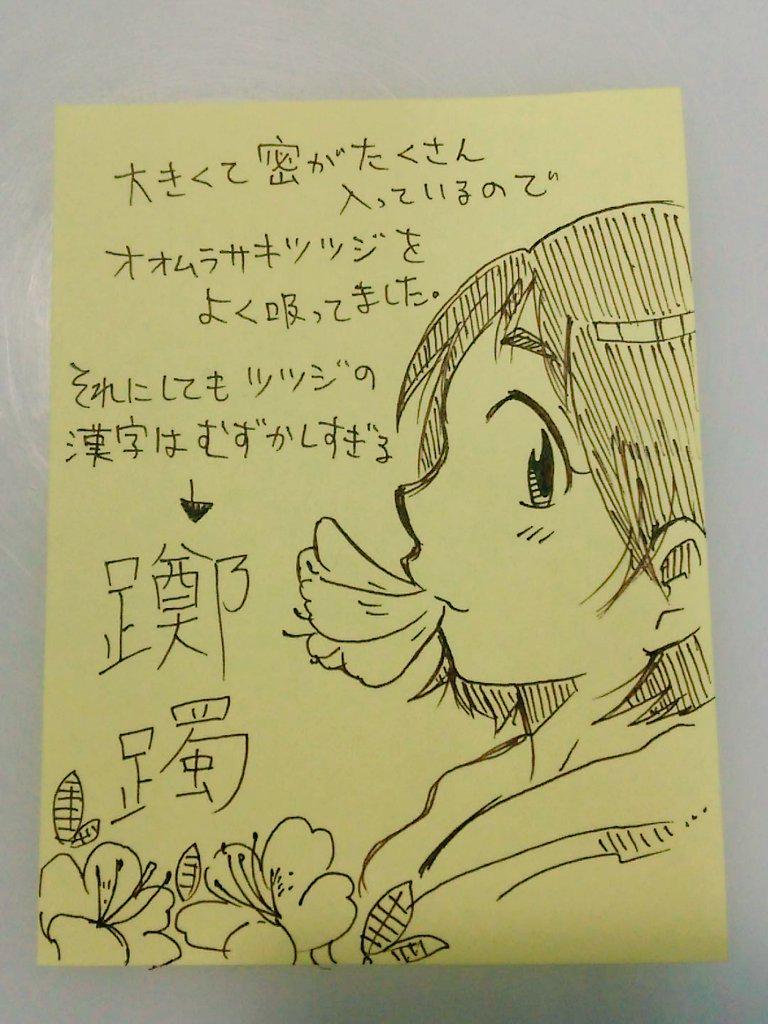 大きくて密がたくさん
入っているので
オオムラサキツツジを
よく吸ってました。
それにしてもツツジの
漢字はむずかしすぎる
躑
躅